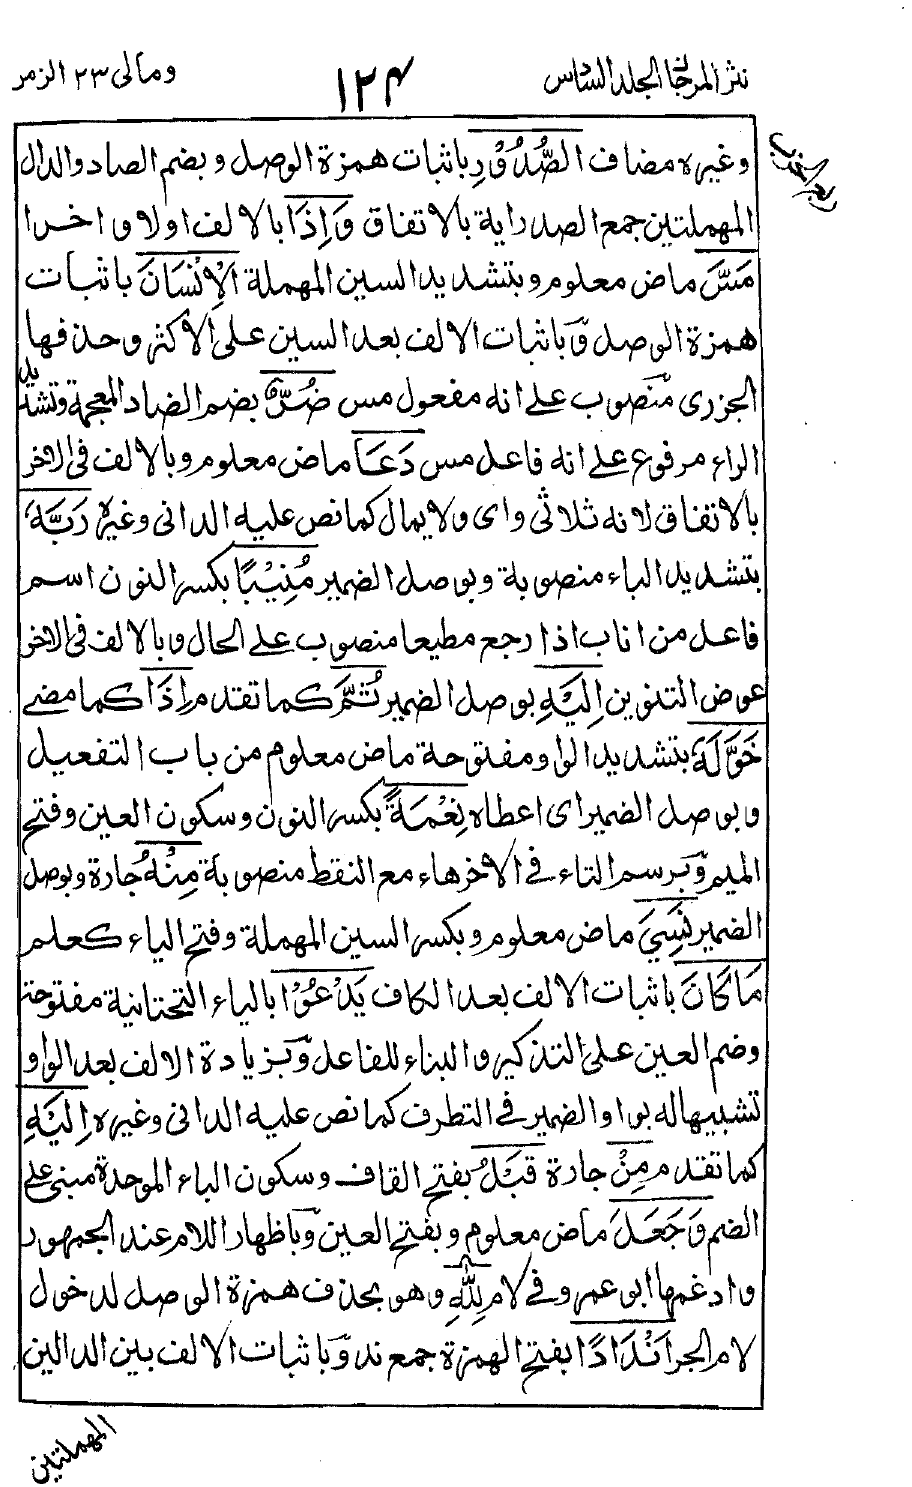 نثر المرجان الجلد السادس ١٢٤ ومالی ٢٣ الزمر
ربع الحزب
وغیره مضاف الصُّدُوْرِ باثبات همزة الوصل وبضم الصاد والدال
المهملتین جمع الصدر اية بالاتفاق وَاِذَا بالالف اولا واخرا
مَسَّ ماض معلوم وبتشدید السین المهملة الْاِنْسَانَ باثبات
همزة الوصل وباثبات الالف بعد السین علی الاکثر وحذفها
الجزری منصوب علی انه مفعول مس ضُرٌّ بضم الضاد المعجمة وتشدید
الراء مرفوع علی انه فاعل مس دَعَا ماض معلوم وبالالف فی الاخر
بالاتفاق لانه ثلاثی وای ولا یمال کما نص علیه الدانی وغیره رَبَّهٗ
بتشدید الباء منصوبة وبوصل الضمیر مُنِیْبًا بکسر النون اسم
فاعل من اناب اذا رجع مطیعا منصوب علی الحال وبالالف فی الاخر
عوض التنوین اِلَیْهِ بوصل الضمیر ثُمَّ کما تقدم اِذَا کما مضی
خَوَّلَهٗ بتشدید الواو مفتوحة ماض معلوم من باب التفعیل
وبوصل الضمیر ای اعطاه نِعْمَةً بکسر النون وسکون العین وفتح
المیم وبرسم التاء فی الاخر هاء مع النقط منصوبة مِنْهُ جارة وبوصل
الضمیر نَسِیَ ماض معلوم وبکسر السین المهملة وفتح الیاء کعلم
مَا کَانَ باثبات الالف بعد الکاف یَدْعُوْا بالیاء التحتانیة مفتوحة
وضم العین علی التذکیر والبناء للفاعل وبزیادة الالف بعد الواو
تشبیها له بواو الضمیر فی التطرف کما نص علیه الدانی وغیره اِلَیْهِ
کما تقدم مِنْ جارة قَبْلُ بفتح القاف وسکون الباء الموحدة مبنی علی
الضم وَجَعَلَ ماض معلوم وبفتح العین وباظهار اللام عند الجمهور
وادغمها ابو عمرو فی لام لِلّٰهِ وهو بحذف همزة الوصل لدخول
لام الجر اَنْدَادًا بفتح الهمزة جمع ند وباثبات الالف بین الدالین
المهملتین